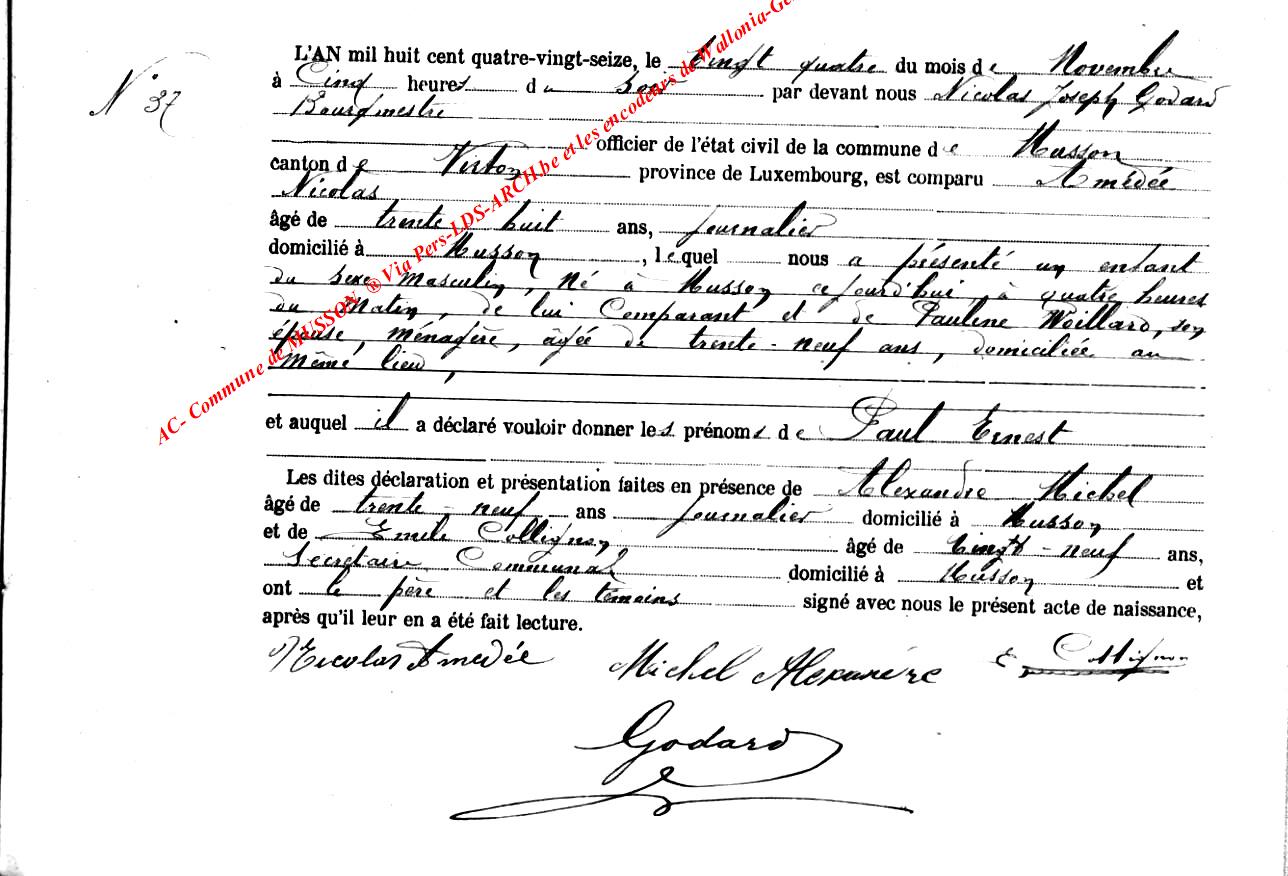 N° 37
L'AN mil huit cent quatre-vingt-seize, le vingt quatre du mois de Novembre
à Cinq heures du soir par devant nous Nicolas Joseph Godard
Bourgmestre
officier de l'état civil de la commune de Musson
canton de Virton province de Luxembourg, est comparu Amédée
Nicolas
âgé de trente huit ans, journalier
domicilié à Musson, lequel nous a présenté un enfant
du sexe masculin, né à Musson cejourd'hui, à quatre heures
du matin, de lui Comparant et de Pauline Woillard, son
épouse, ménagère, âgée de trente-neuf ans, domiciliée au
même lieu,
et auquel il a déclaré vouloir donner les prénoms de Paul Ernest
Les dites déclaration et présentation faites en présence de Alexandre Michel
âgé de trente-neuf ans journalier domicilié à Musson
et de Emile Collignon âgé de vingt-neuf ans,
Secrétaire Communal domicilié à Musson et
ont le père et les témoins signé avec nous le présent acte de naissance,
après qu'il leur en a été fait lecture.
Nicolas Amedée Michel Alexandre E Collignon
Godard
AC- Commune de MUSSON ® Via Pers-LDS-ARCH.be et les encodeurs de Wallonia-Ge